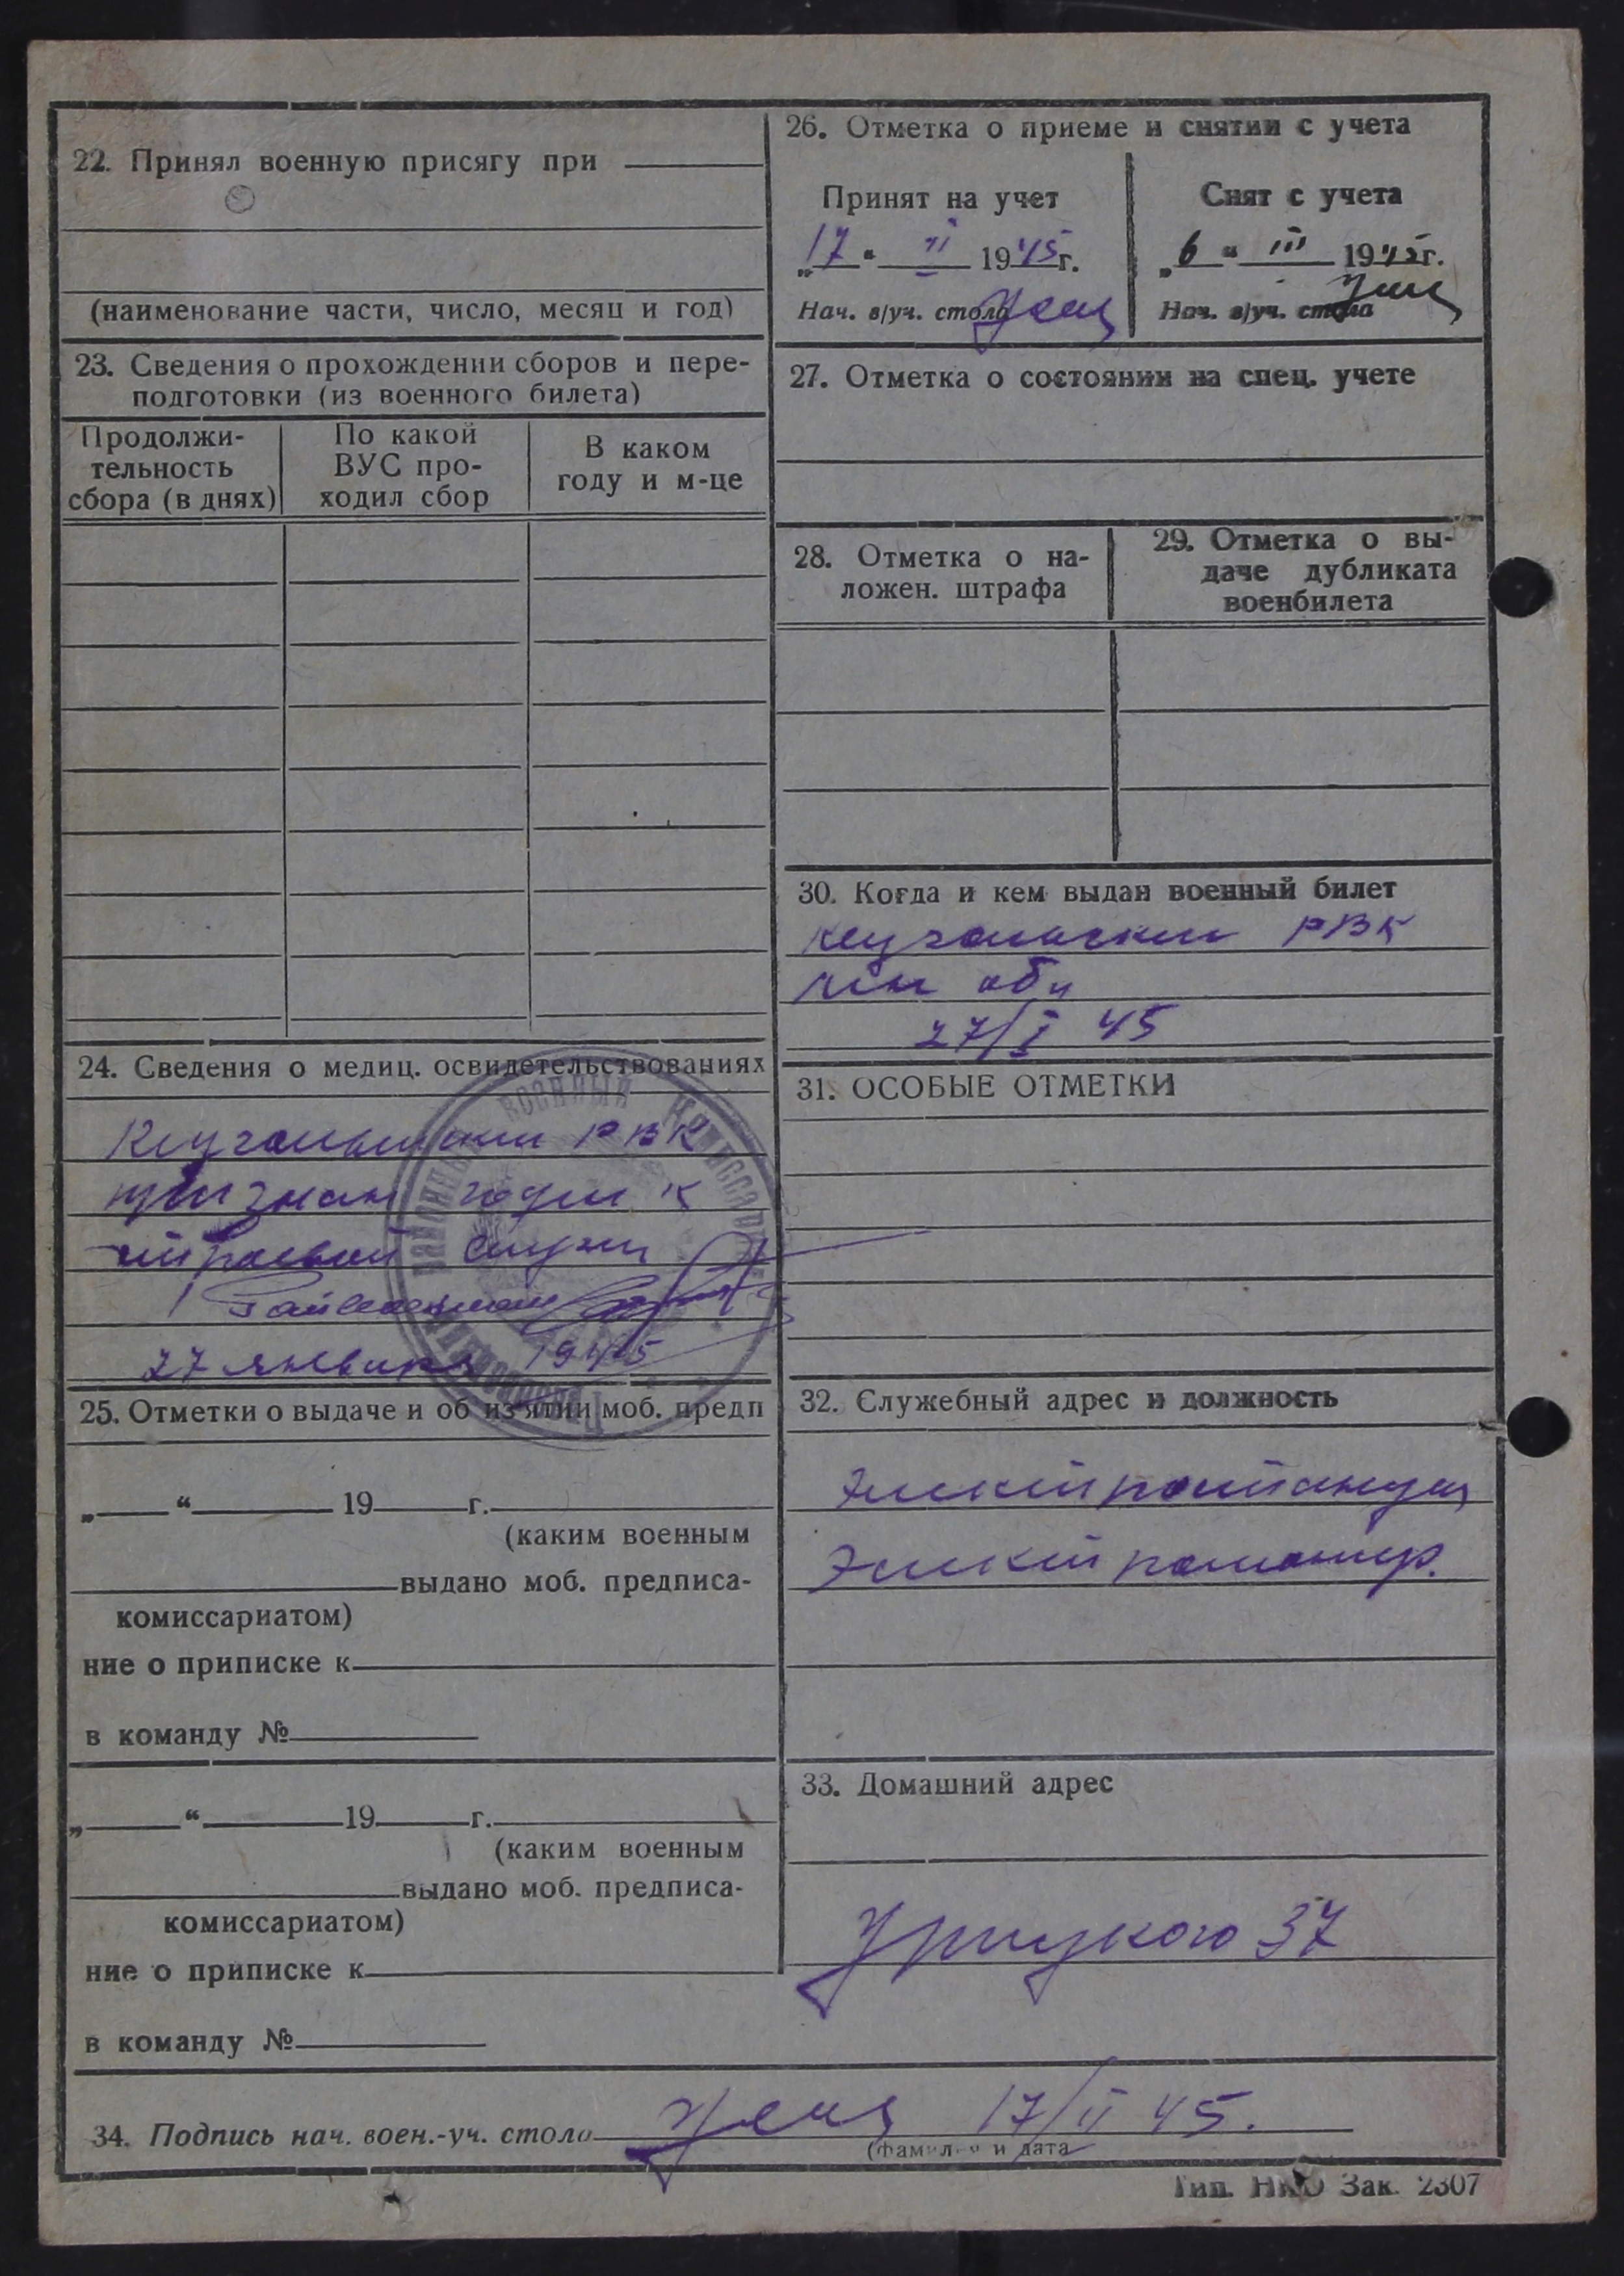 22. Принял военную присягу при
(наименование части, число, месяц и год)
23. Сведения о прохождении сборов и пере-
подготовки (из военного билета)
Продолжи-
тельность
сбора (в днях)
По какой
ВУС про-
ходил сбор
В каком
году и м-це
24. Сведения о медиц. освидетельствованиях
РВК
признан годен к
строевой служ
27 января 1945
25. Отметки о выдаче и об из'ятии моб. предп
„ “ 19 г.
(каким военным
выдано моб. предписа-
комиссариатом)
ние о приписке к
в команду №
„ “ 19 г.
(каким военным
выдано моб. предписа-
комиссариатом)
ние о приписке к
в команду №
26. Отметка о приеме и снятии с учета
Принят на учет
„17“ II 1945г.
Нач. в/уч. стола
Снят с учета
„6“ III 1945г.
Нач. в/уч. стола
27. Отметка о состоянии на спец. учете
28. Отметка о на-
ложен. штрафа
29. Отметка о вы-
даче дубликата
военбилета
30. Когда и кем выдан военный билет
РВК
обл
27/I 45
31. ОСОБЫЕ ОТМЕТКИ
32. Служебный адрес и должность
Электростанция
Электромонтер.
33. Домашний адрес
Урицкого 37
34. Подпись нач. воен.-уч. стола 17/II 45.
(фамилия и дата
Тип. НКО Зак. 2307